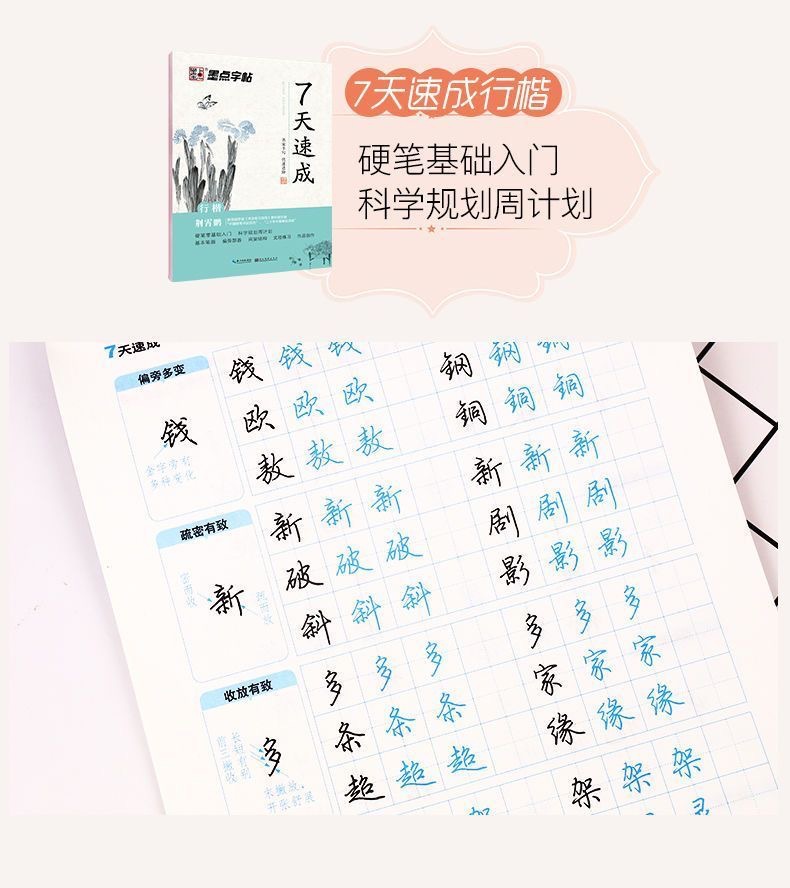 墨点字帖
7天速成
行楷
荆霄鹏
硬笔零基础入门 科学规划周计划
基本笔画 偏旁部首 间架结构 文段练习 作品创作
7天速成行楷
硬笔基础入门
科学规划周计划
7天速成
偏旁多变
钱
金字旁有
多种变化
钱 钱 钱 钢 钢 钢
欧 欧 欧 铜 铜 铜
敖 敖 敖
疏密有致
新
新 新 新 新 新 新
破 破 破 剧 剧 剧
斜 斜 斜 影 影 影
收放有致
多
长短有别
前三撇收
末撇放,
开张舒展
多 多 多 多 多 多
条 条 条 家 家 家
超 超 超 缘 缘 缘
架 架 架